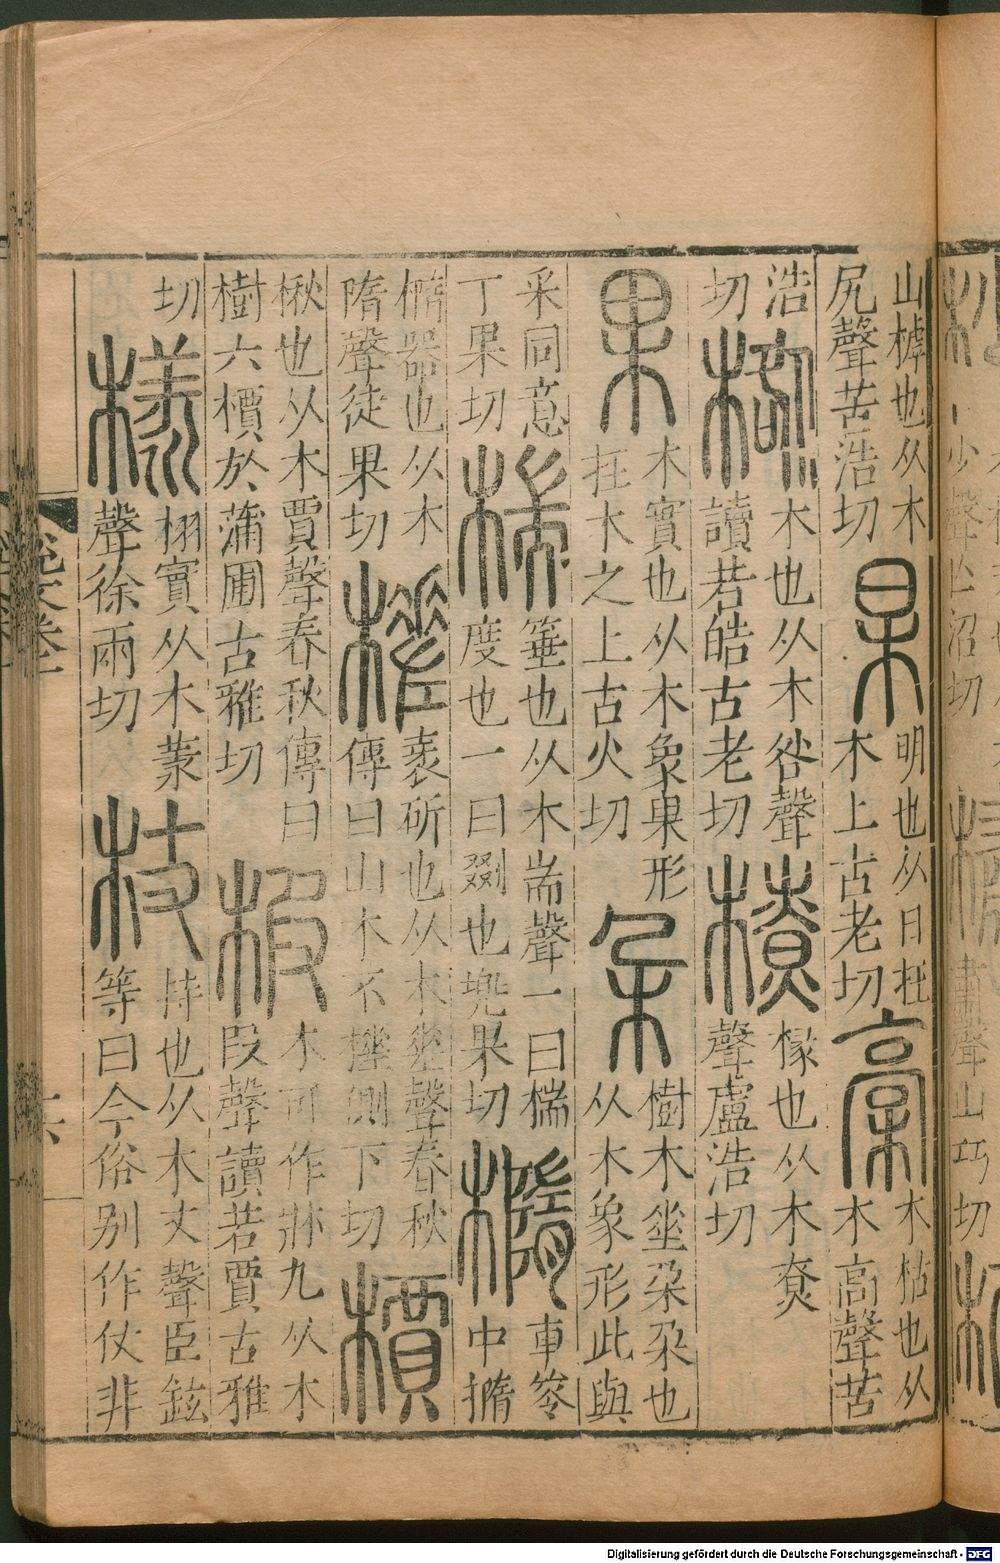 少聲山沼切
肅聲山巧切
山樗也从木尻聲苦浩切杲明也从日在木上古老切槀木枯也从木高聲苦
浩切㮴木也从木咎聲讀若皓古老切橑椽也从木尞聲盧浩切
果木實也从木象果形在木之上古火切朵樹木垂朵朵也从木象形此與
采同意丁果切椯箠也从木耑聲一曰椯度也一曰剟也兜果切橢車笭中橢
橢器也从木隋聲徒果切槎衺斫也从木差聲春秋傳曰山木不槎側下切檟
楸也从木賈聲春秋傳曰樹六檟於蒲圃古雅切椵木可作牀几从木叚聲讀若賈古雅
切樣栩實从木羕聲徐兩切杖持也从木丈聲臣鉉等曰今俗別作仗非